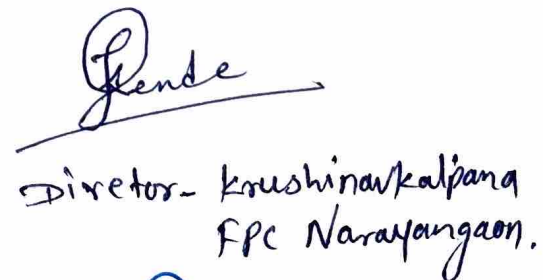 Diretor- Krushinavkalpana
FPC Narayangaon.